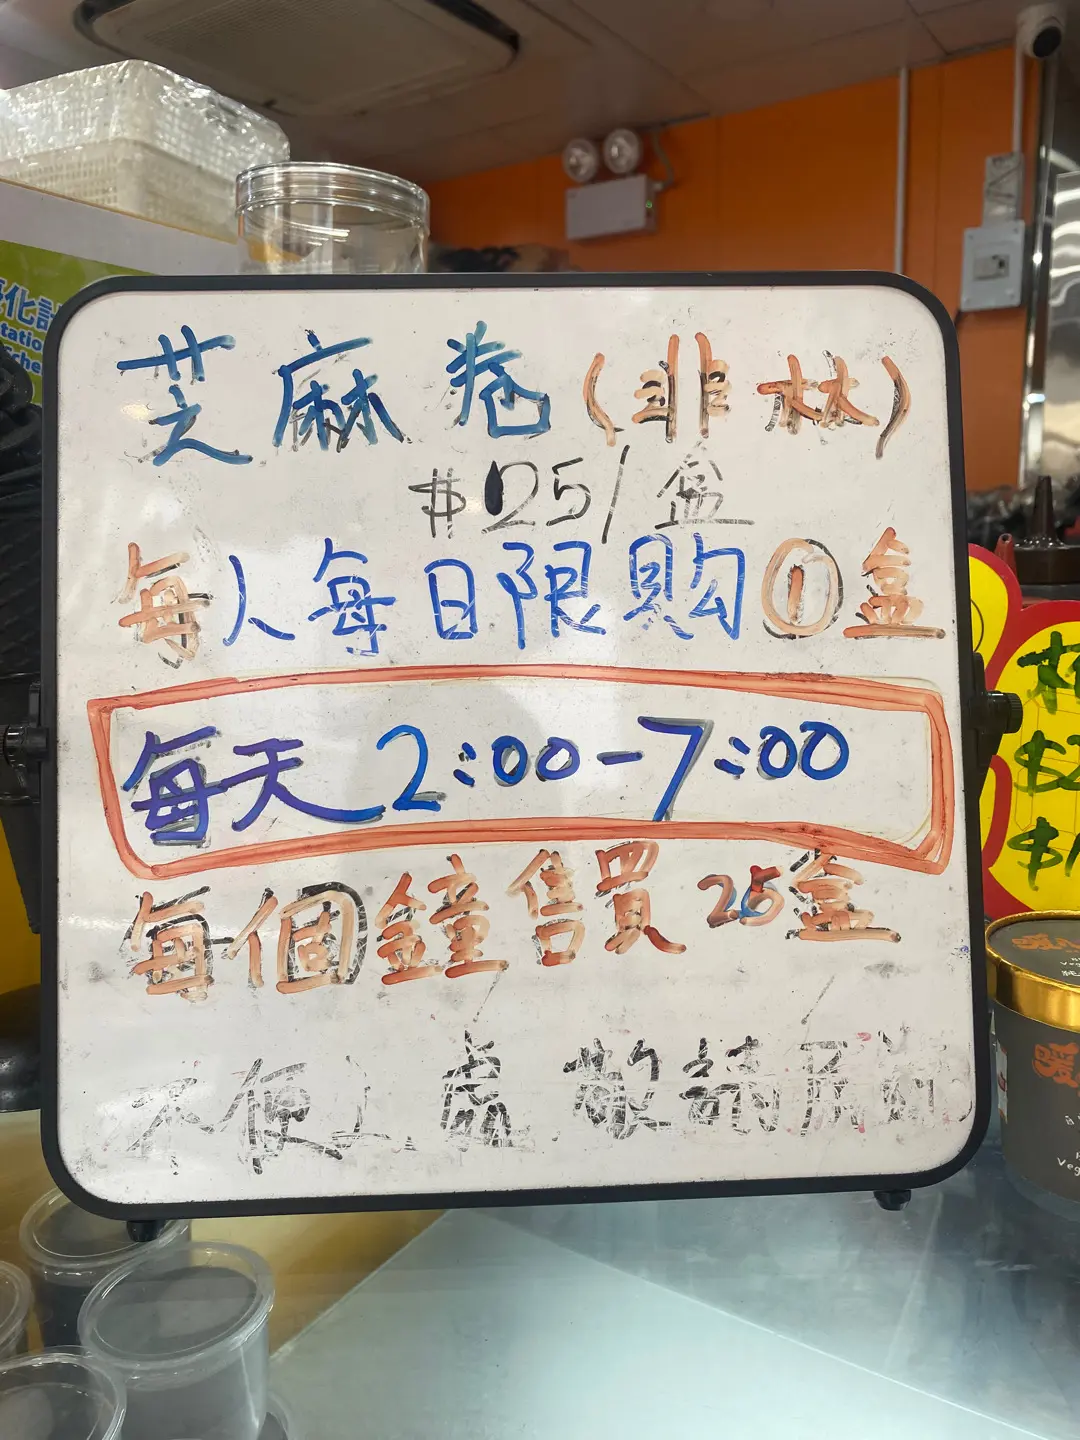 芝麻卷(菲林)
$25/盒
每人每日限購①盒
每天2:00-7:00
每個鐘售買25盒
不便之處 敬請原諒
化計
tatio
Sche